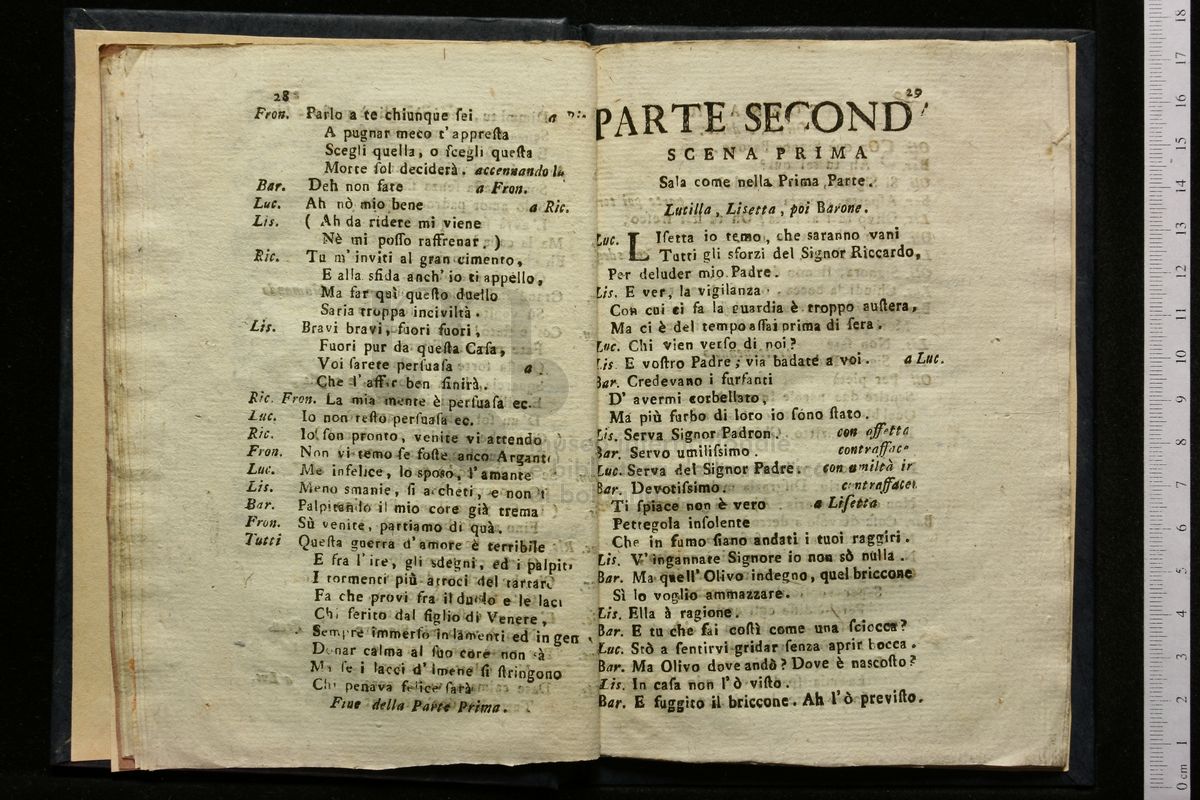 28
Fron. Parlo a te chiunque ſei a
A pugnar meco t'appreſta
Scegli quella, o ſcegli queſta
Morte ſol deciderà. accennando la
Bar. Deh non fate a Fron.
Luc. Ah nò mio bene a Ric.
Lis. ( Ah da ridere mi viene
Nè mi poſſo raffrenar. )
Ric. Tu m'inviti al gran cimento,
E alla sfida anch'io ti appello,
Ma far quì queſto duello
Saria troppa inciviltà.
Lis. Bravi bravi, fuori fuori,
Fuori pur da queſta Caſa,
Voi ſarete perſuaſa a
Che l'affar ben finirà.
Ric. Fron. La mia mente è perſuaſa ec.
Luc. Io non reſto perſuaſa ec.
Ric. Io ſon pronto, venite vi attendo
Fron. Non vi temo ſe foſte anco Argante
Luc. Me infelice, lo sposo, l'amante
Lis. Meno smanie, ſi accheti, e non
Bar. Palpitando il mio core già trema
Fron. Sù venite, partiamo di quà.
Tutti Queſta guerra d'amore è terribile
E fra l'ire, gli sdegni, ed i palpiti
I tormenti più atroci del tartaro
Fa che provi fra il duolo e le laci
Chi ferito dal figlio di Venere,
Sempre immerſo in lamenti ed in gen
Donar calma al ſuo core non sà
Ma ſe i lacci d'Imene ſi ſtringono
Chi penava felice ſarà
Fine della Parte Prima.
29
PARTE SECOND
SCENA PRIMA
Sala come nella Prima Parte.
Lucilla, Lisetta, poi Barone.
Luc. Liſetta io temo, che saranno vani
Tutti gli sforzi del Signor Riccardo,
Per deluder mio Padre.
Lis. E ver, la vigilanza
Con cui ci fa la guardia è troppo auſtera,
Ma ci è del tempo aſſai prima di ſera.
Luc. Chi vien verſo di noi?
Lis. E voſtro Padre; via badate a voi. a Luc.
Bar. Credevano i furfanti
D'avermi corbellato,
Ma più furbo di loro io ſono ſtato.
Lis. Serva Signor Padron. con affetta
Bar. Servo umiliſsimo. contrafface
Luc. Serva del Signor Padre. con umiltà ir
Bar. Devotiſsimo. contraffacen
Ti ſpiace non è vero a Liſetta
Pettegola inſolente
Che in fumo ſiano andati i tuoi raggiri.
Lis. V'ingannate Signore io non sò nulla.
Bar. Ma quell'Olivo indegno, quel briccone
Sì lo voglio ammazzare.
Lis. Ella à ragione.
Bar. E tu che fai coſtì come una ſciocca?
Luc. Stò a ſentirvi gridar ſenza aprir bocca.
Bar. Ma Olivo dove andò? Dove è naſcoſto?
Lis. In caſa non l'ò viſto.
Bar. E fuggito il briccone. Ah l'ò previſto.